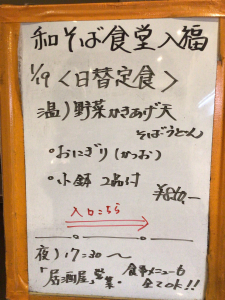 和そば食堂入福
1/19〈日替定食〉
温)野菜かきあげ天
そばうどん
・おにぎり(かつお)
・小鉢 2品付
¥860-
入口こちら
夜)17:30〜
「居酒屋」営業・食事メニューも
全てok!!